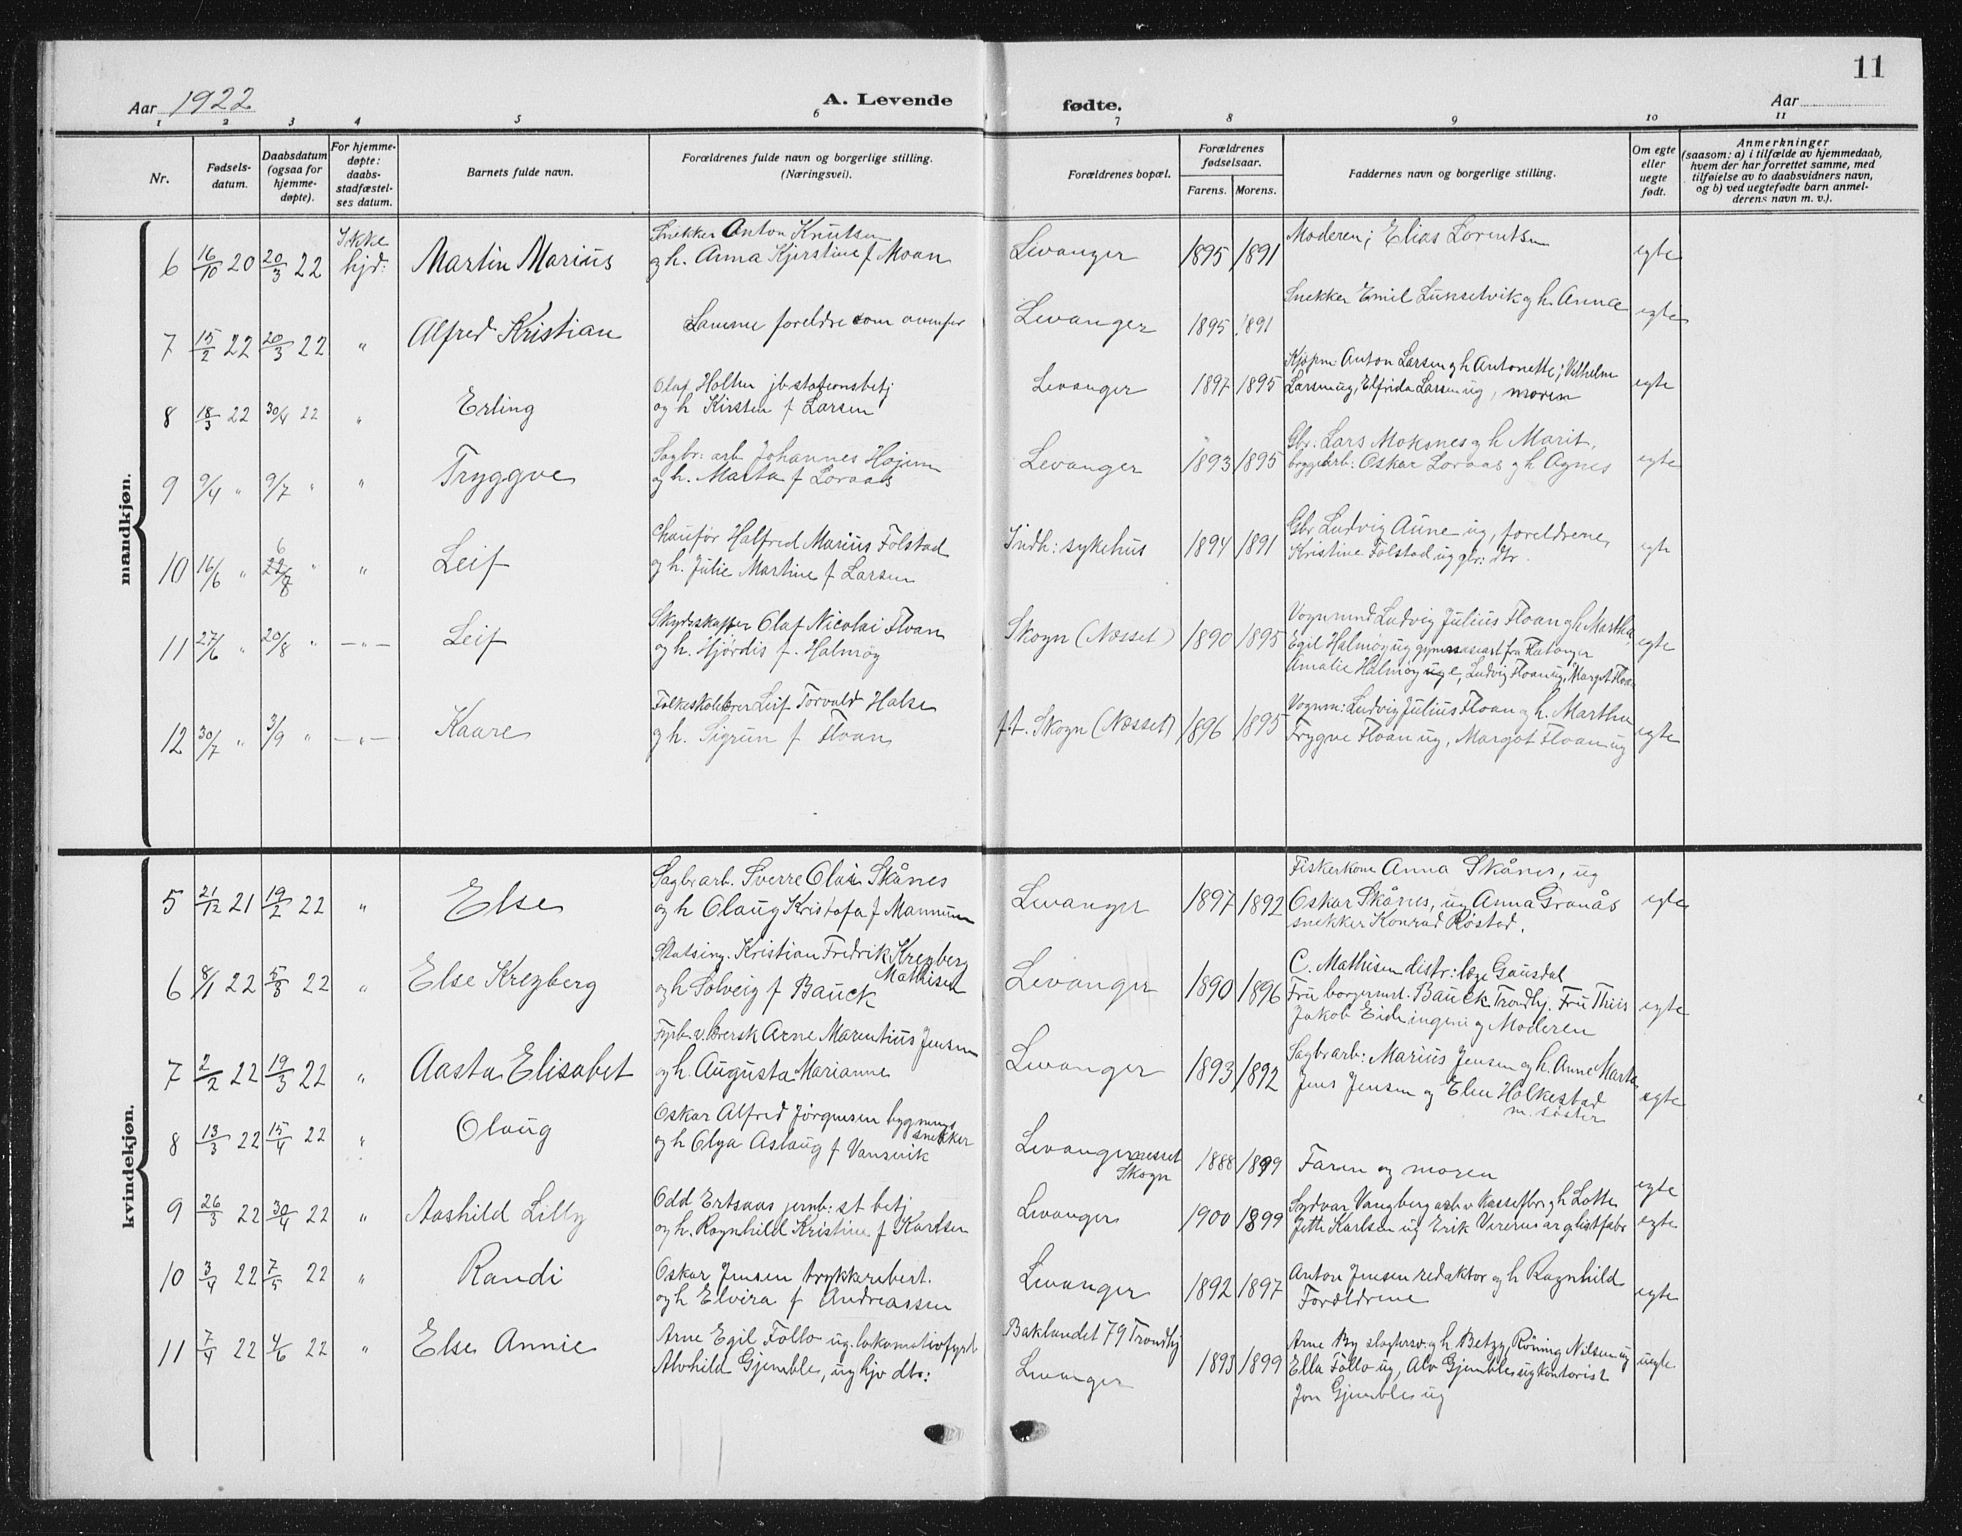 11
Aar 1922
A. Levende fødte.
Aar
1 2 3 4 5 6 7 8 9 10 11
Nr.
Fødsels-
datum.
Daabsdatum
(ogsaa for
hjemme-
døpte).
For hjemme-
døpte:
daabs-
stadfæstel-
ses datum.
Barnets fulde navn.
Forældrenes fulde navn og borgerlige stilling.
(Næringsvei).
Forældrenes bopæl.
Forældrenes
fødselsaar.
Farens. Morens.
Faddernes navn og borgerlige stilling.
Om egte
eller
uegte
født.
Anmerkninger
(saasom: a) i tilfælde av hjemmedaab,
hvem der har forrettet samme, med
tilføielse av to daabsvidners navn,
og b) ved uegtefødte barn anmel-
derens navn m. v.).
mandkjøn.
6 16/10 20 20/3 22 Ikke hjd: Martin Marius
Snekker Anton Knutsen
og h. Anna Kjerstine f Moan
Levanger 1895 1891
Moderen; Elias Lorentsen
egte
7 15/2 22 20/3 22 " Alfred Kristian
Samme foreldre som ovenfor
Levanger 1895 1891
Snekker Emil Lukselvik og h. Anna
egte
8 18/3 22 30/4 22 " Erling
Olaf Holten jb.stationsbetj
og h Kirsten f Larsen
Levanger 1897 1895
Kjøpm: Anton Larsen g h Antonette; Vilhelm
Larsen ug, Elfrida Larsen ug, moren
egte
9 9/4 " 9/7 " " Tryggve
Sagbr: arb Johannes Hojem
og h. Marta f Loraas
Levanger 1893 1895
Gbr. Lars Moksnes g h Marit,
bryggearb: Oskar Loraas g h Agnes
egte
10 16/6 " 6/8 " " Leif
Chaufør Halfred Marius Folstad
og h. Julie Martine f Larsen
Indh: sykehus 1894 1891
Gbr Ludvig Aune ug, foreldrene,
Kristine Folstad ug gbr: dtr.
egte
11 27/6 " 20/8 " — " — Leif
Skydsskaffer Olaf Nicolai Floan
og h. Hjørdis f. Halmøy
Skogn (Næsset) 1890 1895
Vognmnd Ludvig Julius Floan g h Martha,
Egil Halmøy ug gymnasiast fra
Amalie Halmøy ug, Ludvig Floan ug, Margot Floan
egte
12 30/7 " 3/9 " — " — Kaare
Folkeskolelærer Leif Torvald Halse
og h. Sigrun f Floan
f.t. Skogn (Næsset) 1896 1895
Vognm: Ludvig Julius Floan g h. Martha
Trygve Floan ug, Margot Floan ug
egte
kvindekjøn.
5 21/12 21 19/2 22 " Else
Sagbrarb. Sverre Olai Skånes
og h Olaug Kristofa f
Levanger 1897 1892
Fiskerkone Anna Skånes, ug
Oskar Skånes, ug Anna Granås
snekker Konrad Røstad.
egte
6 8/1 22 5/3 22 " Else Kreyberg
Statsing. Kristian Fredrik Kreyberg
Mathisen
og h Solveig f Bauck
Levanger 1890 1896
C. Mathisen distr: læge Gausdal
Fru borgermst. Bauck Trondhj. Fru Thiis
Jakob Eide ingeniør og Moderen
egte
7 2/2 22 19/3 22 " Aasta Elisabet
Fyrb. v. Arne Marentius Jensen
og h. Augusta Marianne
Levanger 1893 1892
Sagbrarb: Marius Jensen og h. Anne Marta
Jens Jensen og Elen Holkestad
m. søster
egte
8 13/3 22 15/4 22 " Olaug
Oskar Alfred Jørgensen bygnings
snekker
og h Olga Aslaug f Vansvik
Levangernesset
Skogn
1888 1899
Faren og moren
egte
9 26/3 22 30/4 22 " Aashild Lilly
Odd Ertsaas jernb: st betj
og h. Ragnhild Kristine f Karlsen
Levanger 1900 1899
Sydvar Vangberg arb v g h Lotte
Jetti Karlsen ug Erik
egte
10 3/4 22 7/5 22 " Randi
Oskar Jensen trykkeribest.
og h Elvira f Andreassen
Levanger 1892 1897
Anton Jensen redaktør og h Ragnhild
Forældrene
egte
11 7/4 22 4/6 22 " Else Annie
Arne Egil Follo ug. lokomotivfyrb
Alvhild Gjemble, ug hjv dtr:
Baklandet 79 Trondhj
Levanger
1893 1899
Arne By slagtersv. g h Betzy, Röning Nilsen ug
Ella Follo ug, Alv Gjembles ug kontorist
Jon Gjembles ug
uegte